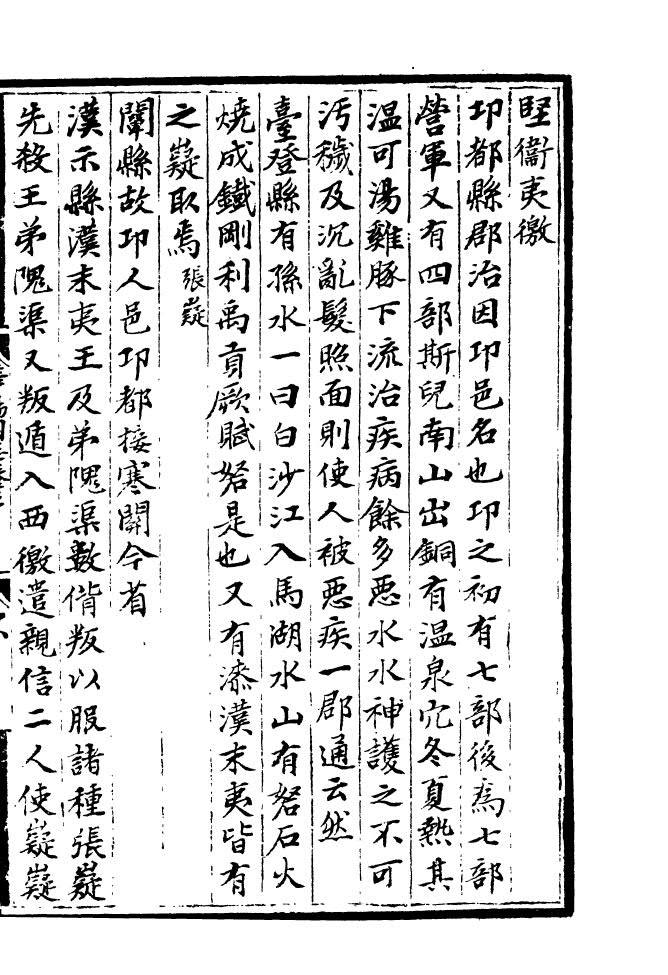 堅衞夷徼
卭都縣郡治因卭邑名也卭之初有七部後爲七部
營軍又有四部斯兒南山出銅有温泉穴冬夏熱其
温可湯雞豚下流治疾病餘多悪水水神護之不可
汚穢及沉亂髮照面則使人被悪疾一郡通云然
臺登縣有孫水一曰白沙江入馬湖水山有砮石火
燒成鐵剛利禹貢厥賦砮是也又有漆漢末夷皆有
之嶷取焉張嶷
闡縣故卭人邑卭都接寒關今省
漢示縣漢末夷王及弟隗渠數偝叛以服諸種張嶷
先殺王弟隗渠又叛遁入西徼遣親信二人使嶷嶷